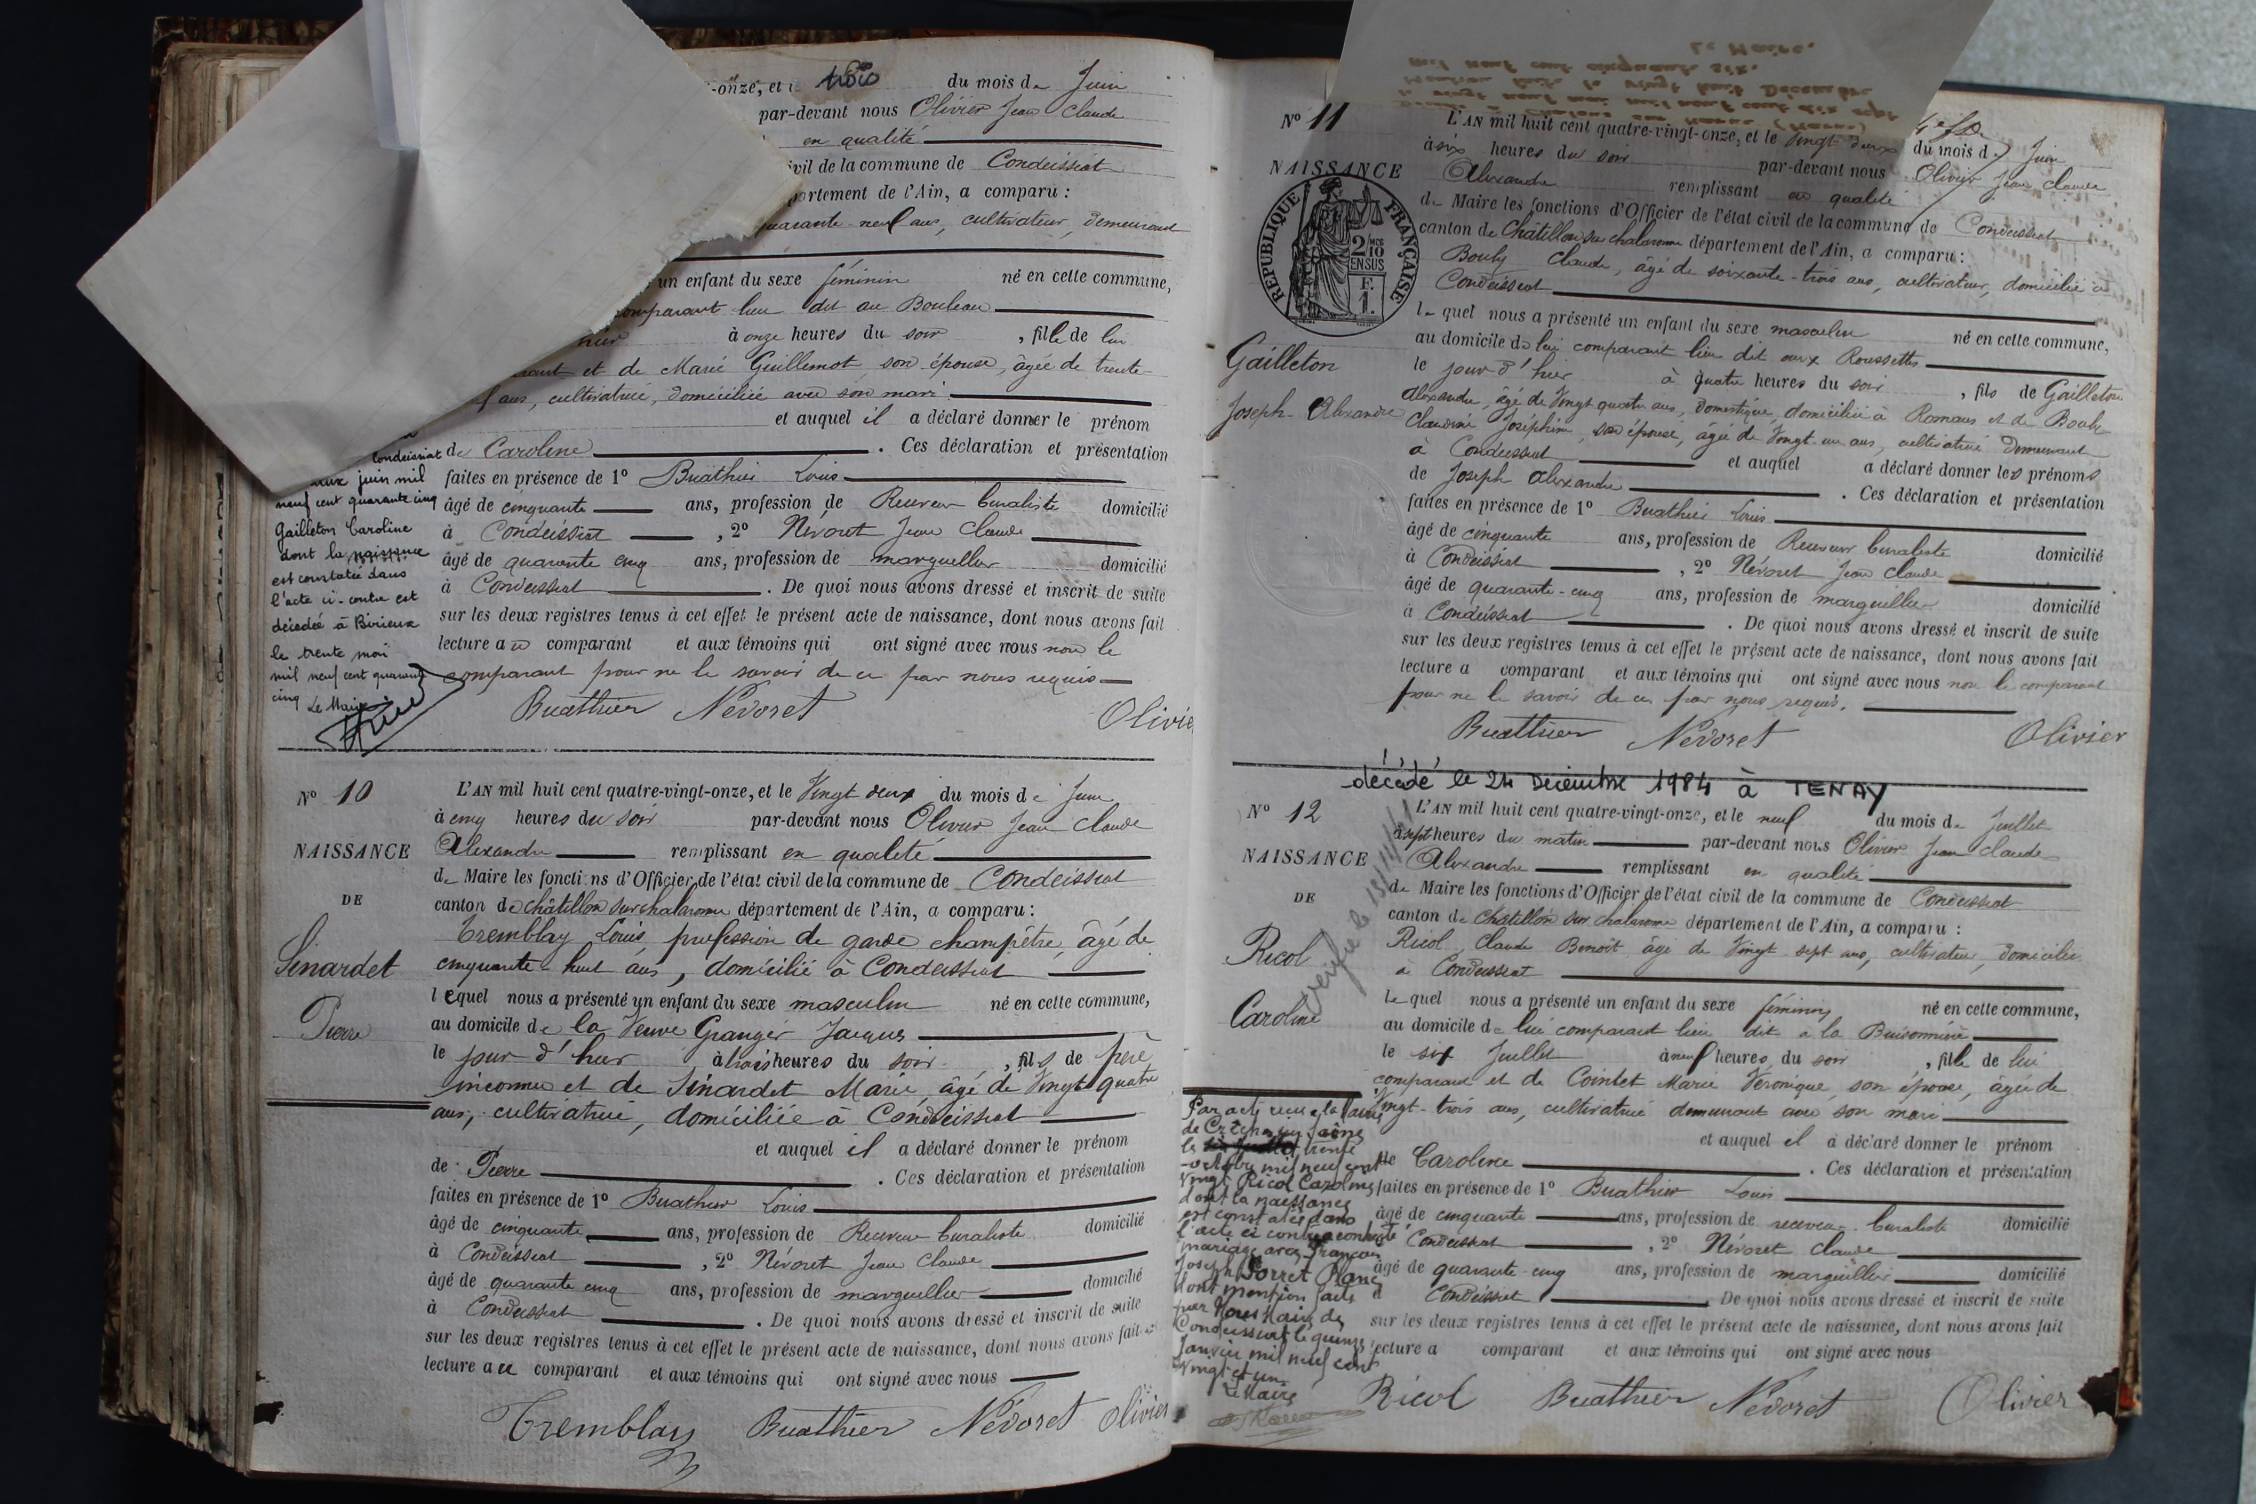 -onze, et trois du mois de Juin
par-devant nous Olivier Jean Claude
en qualité
ivil de la commune de Condeissiat
partement de l'Ain, a comparu :
quarante-neuf ans, cultivateur, demeurant
un enfant du sexe féminin né en cette commune,
comparant lieu dit au Bouleau
hier à onze heures du soir , fille de lui
et de Marie Guillemot son épouse, âgée de trente-
ans, cultivatrice, domiciliée avec son mari
et auquel il a déclaré donner le prénom
de Caroline . Ces déclaration et présentation
faites en présence de 1º Buathier Louis
âgé de cinquante ans, profession de Receveur buraliste domicilié
à Condeissiat , 2º Névoret Jean Claude
âgé de quarante cinq ans, profession de marguellier domicilié
à Condeissiat . De quoi nous avons dressé et inscrit de suite
sur les deux registres tenus à cet effet le présent acte de naissance, dont nous avons fait
lecture au comparant et aux témoins qui ont signé avec nous non le
comparant pour ne le savoir de ce par nous requis
Buathier Névoret Olivier
Condeissiat
deux juin mil
neuf cent quarante cinq
Gailleton Caroline
dont la naissance
est constatée dans
l'acte ci-contre est
décédée à Birieux
le trente mai
mil neuf cent quarante
cinq Le Maire
Nº 10
NAISSANCE
DE
Sinardet
Pierre
L'AN mil huit cent quatre-vingt-onze, et le Vingt deux du mois de Juin
à cinq heures du soir par-devant nous Olivier Jean Claude
Alexandre remplissant en qualité
de Maire les fonctions d'Officier de l'état civil de la commune de Condeissiat
canton de châtillon sur chalaronne département de l'Ain, a comparu :
Tremblay Louis, profession de garde champêtre, âgé de
cinquante-huit ans, domicilié à Condeissiat
lequel nous a présenté un enfant du sexe masculin né en cette commune,
au domicile de la Veuve Granger Jacques
le jour d'hier à trois heures du soir , fils de père
inconnu et de Sinardet Marie, âgé de Vingt quatre
ans, cultivatrice, domiciliée à Condeissiat
et auquel il a déclaré donner le prénom
de Pierre . Ces déclaration et présentation
faites en présence de 1º Buathier Louis
âgé de cinquante ans, profession de Receveur buraliste domicilié
à Condeissiat , 2º Névoret Jean Claude
âgé de quarante cinq ans, profession de marguellier domicilié
à Condeissiat . De quoi nous avons dressé et inscrit de suite
sur les deux registres tenus à cet effet le présent acte de naissance, dont nous avons fait
lecture au comparant et aux témoins qui ont signé avec nous
Tremblay Buathier Névoret Olivier
Le Maire.
mil neuf cent cinquante six.
le vingt huit Décembre
le vingt neuf mai mil neuf cent dix sept
(Marne)
Nº 11
NAISSANCE
RÉPUBLIQUE FRANÇAISE
2/10
EN SUS
F.
1.
Gailleton
Joseph-Alexandre
L'AN mil huit cent quatre-vingt-onze, et le Vingt deux du mois de Juin
à six heures du soir par-devant nous Olivier Jean Claude
Alexandre remplissant en qualité
de Maire les fonctions d'Officier de l'état civil de la commune de Condeissiat
canton de Châtillon sur chalaronne département de l'Ain, a comparu :
Bouby Claude, âgé de soixante-trois ans, cultivateur, domicilié à
Condeissiat
le quel nous a présenté un enfant du sexe masculin né en cette commune,
au domicile de lui comparant lieu dit aux Roussettes
le jour d'hier à quatre heures du soir , fils de Gailleton
Alexandre, âgé de Vingt quatre ans, Domestique, domicilié à Romans et de Bouby
Claudine Joséphine, son épouse, âgée de Vingt un ans, cultivatrice Demeurant
à Condeissiat et auquel a déclaré donner les prénoms
de Joseph Alexandre . Ces déclaration et présentation
faites en présence de 1º Buathier Louis
âgé de cinquante ans, profession de Receveur buraliste domicilié
à Condeissiat , 2º Névoret Jean Claude
âgé de quarante-cinq ans, profession de marguellier domicilié
à Condeissiat . De quoi nous avons dressé et inscrit de suite
sur les deux registres tenus à cet effet le présent acte de naissance, dont nous avons fait
lecture a comparant et aux témoins qui ont signé avec nous non le comparant
pour ne le savoir de ce par nous requis.
Buathier Névoret Olivier
décédé le 24 Décembre 1984 à TENAY
Nº 12
NAISSANCE
DE
Ricol
Caroline
L'AN mil huit cent quatre-vingt-onze, et le neuf du mois de Juillet
à sept heures du matin par-devant nous Olivier Jean Claude
Alexandre remplissant en qualité
de Maire les fonctions d'Officier de l'état civil de la commune de Condeissiat
canton de Châtillon sur chalaronne département de l'Ain, a comparu :
Ricol Claude Benoît, âgé de Vingt sept ans, cultivateur, domicilié
à Condeissiat
le quel nous a présenté un enfant du sexe féminin né en cette commune,
au domicile de lui comparant lieu dit à la Buissonnière
le six Juillet à neuf heures du soir , fille de lui
comparant et de Cointet Marie Véronique, son épouse, âgée de
Vingt-trois ans, cultivatrice demeurant avec son mari
et auquel il a déclaré donner le prénom
de Caroline . Ces déclaration et présentation
faites en présence de 1º Buathier Louis
âgé de cinquante ans, profession de receveur buraliste domicilié
à Condeissiat , 2º Névoret Claude
âgé de quarante cinq ans, profession de marguillier domicilié
à Condeissiat De quoi nous avons dressé et inscrit de suite
sur les deux registres tenus à cet effet le présent acte de naissance, dont nous avons fait
lecture a comparant et aux témoins qui ont signé avec nous
Ricol Buathier Névoret Olivier
Par acte reçu à la Mairie
de
le trente
octobre mil neuf cent
vingt Ricol Caroline
dont la naissance
est constatée dans
l'acte ci contre a contracté
mariage avec François
Joseph Porret Blanc
dont mention faite
par Nous Maire de
Condeissiat le quinze
Janvier mil neuf cent
vingt et un
Le Maire